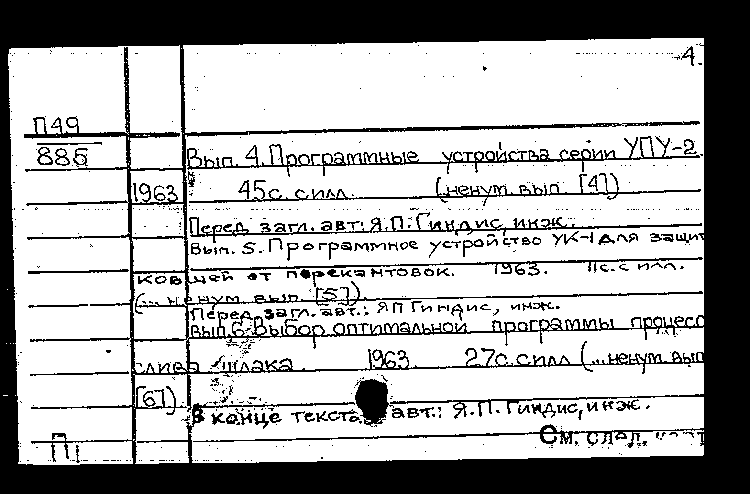 4.
П49
885
Вып. 4. Программные устройства серии УПУ-2.
1963 45с. с илл. (ненум. вып. [4])
Перед загл. авт: Я.П. Гиндис, инж.
Вып. 5. Программное устройство УК-1 для защит
ковшей от перекантовок. 1963. 11с. с илл.
(... ненум. вып. [5]).
Перед загл. авт.: Я П Гиндис, инж.
Вып. 6. Выбор оптимальной программы процесс
слива шлака. 1963. 27с. с илл (... ненум. вып
[6])
В конце текста авт.: Я.П. Гиндис, инж.
См. след.
П